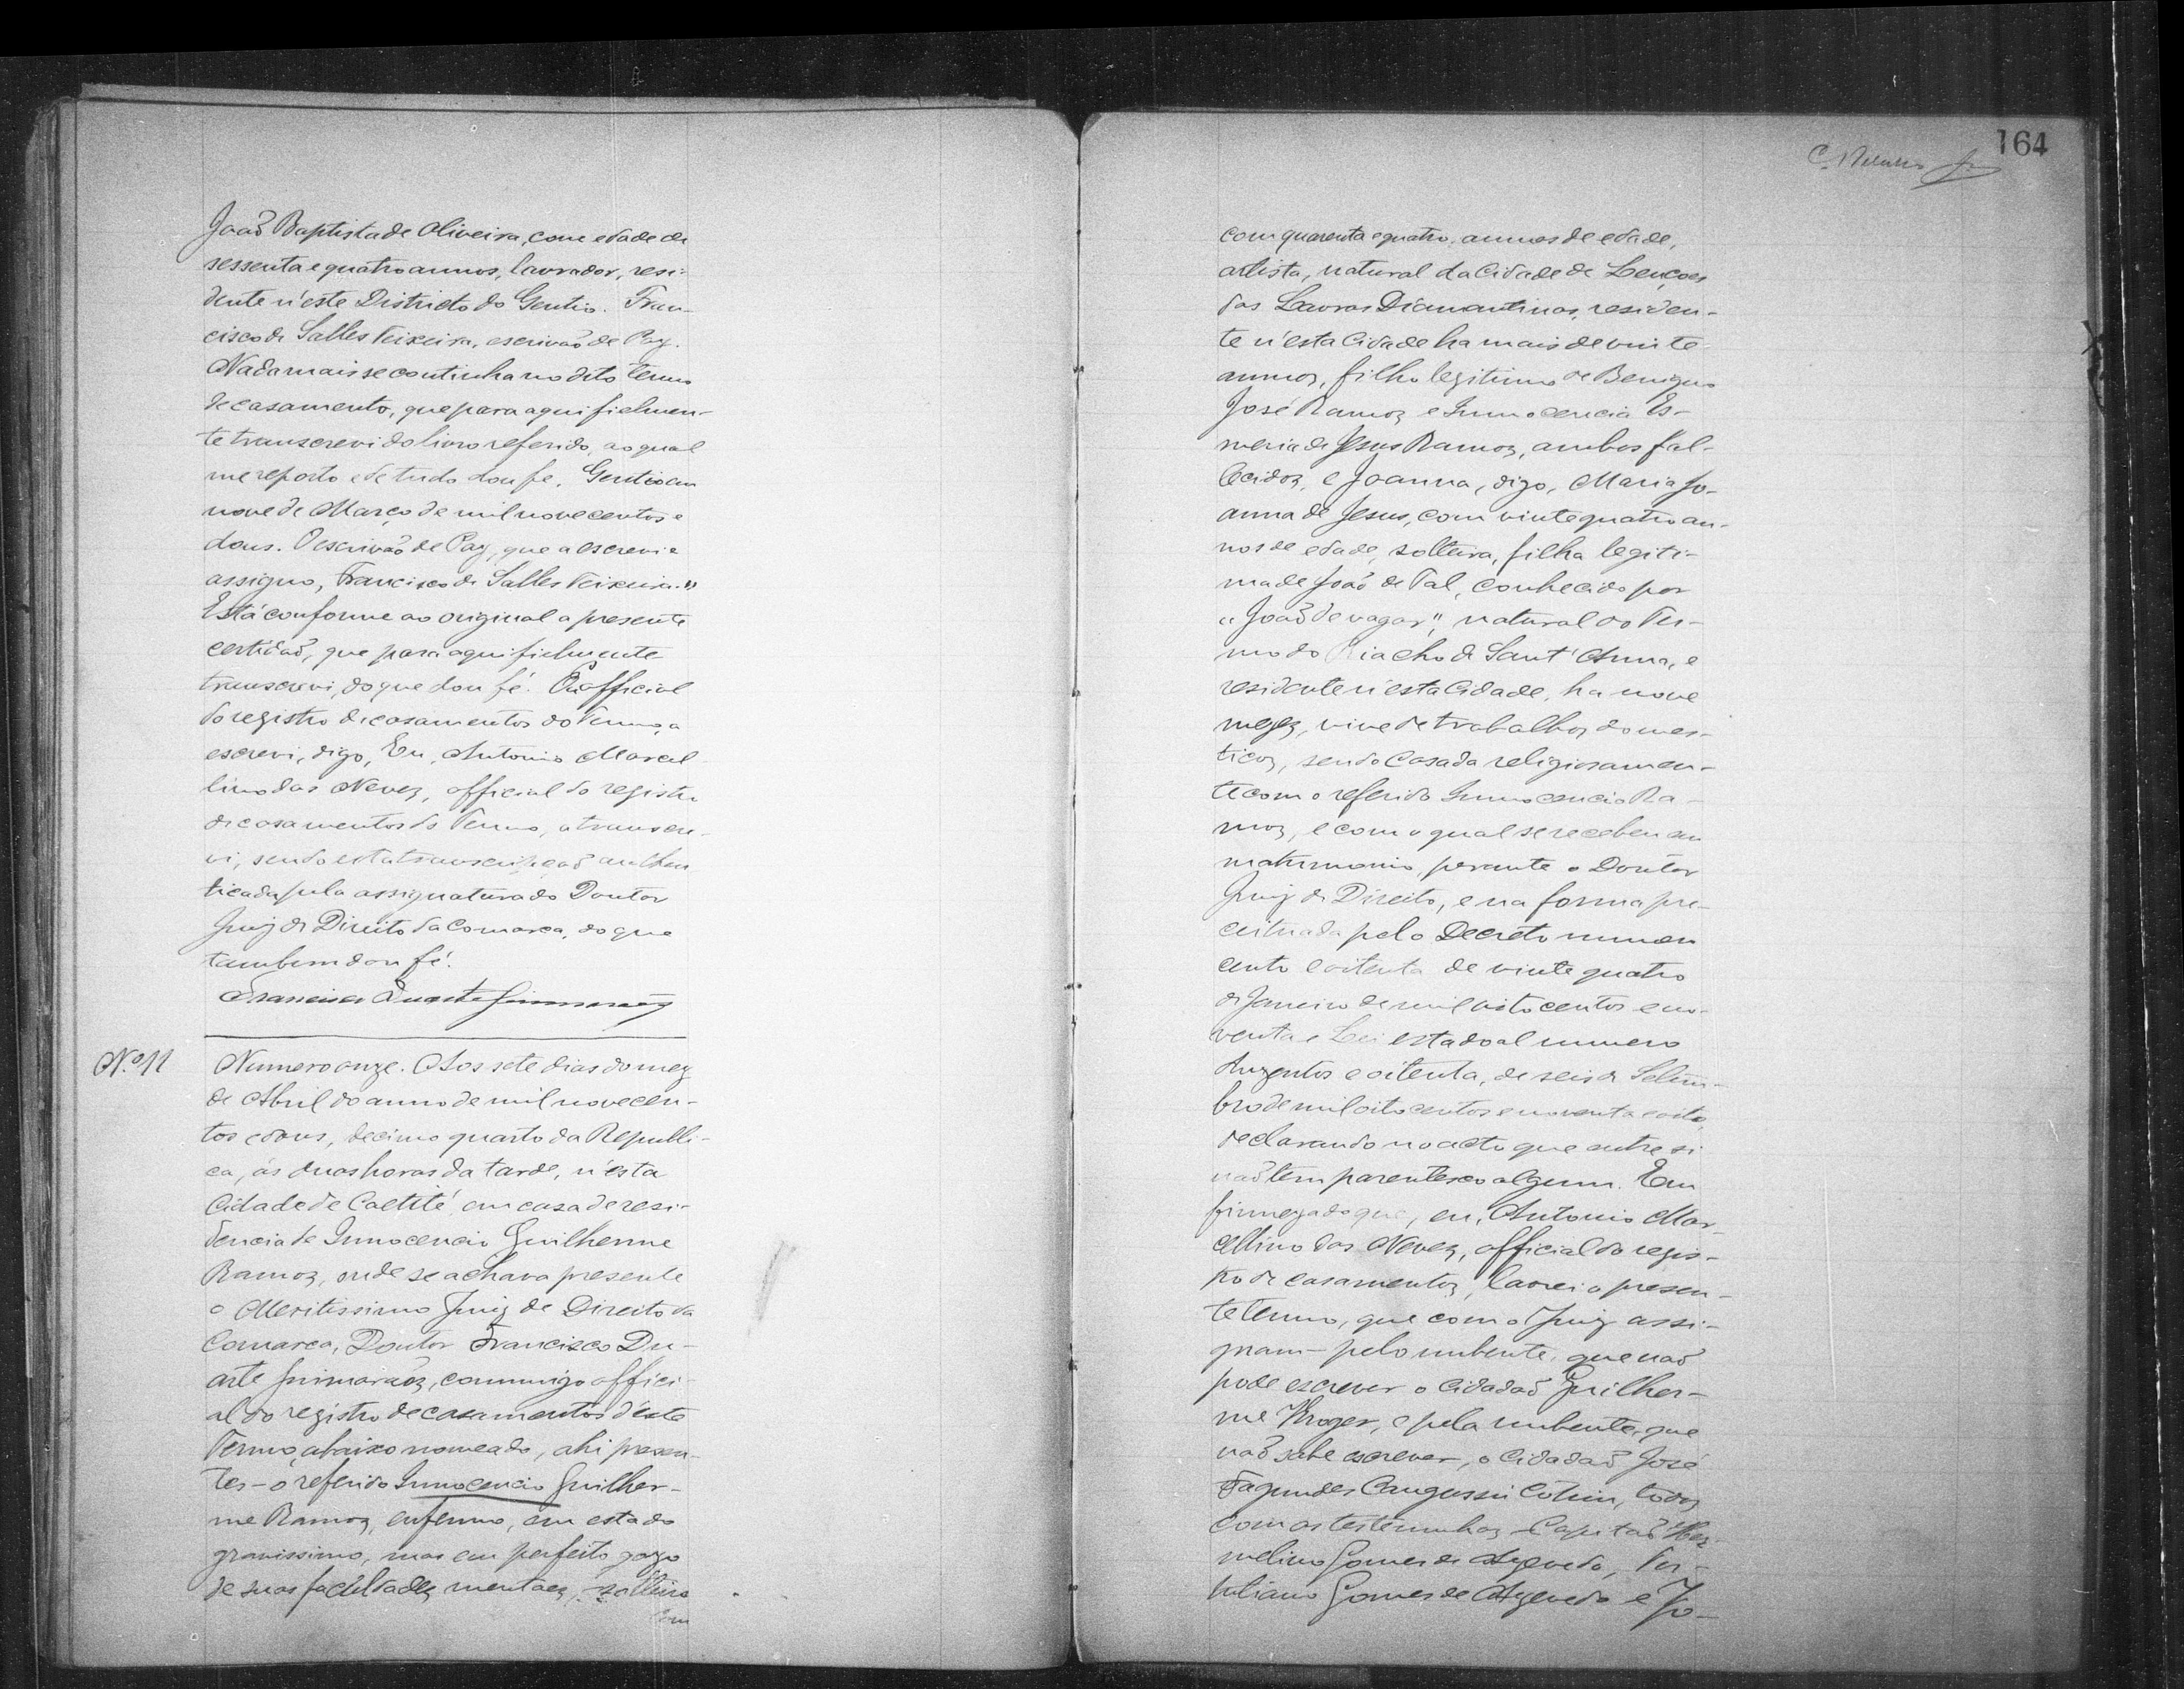 João Baptista de Oliveira, com edade de
sessenta e quatro annos, lavrador, resi-
dente n'este Districto do Gentio. Fran-
cisco de Salles Teixeira, escrivão de Paz.
Nada mais se continha no dito termo
de casamento, que para aqui fielmen-
te transcrevi do livro referido, ao qual
me reporto e de tudo dou fé. Gentio em
nove de Março de mil novecentos e
dous. O escrivão de Paz, que a escrevi e
assigno, Francisco de Salles Teixeira."
Está conforme ao original a presente
certidão, que para aqui fielmente
transcrevi, do que dou fé. O official
do registro de casamentos do Termo, a
escrevi, digo, Eu, Antonio Marcel-
lino das Neves, official do registro
de casamentos do Termo, a transcre-
vi, sendo esta transcripção authen
ticada pela assignatura do Doutor
Juiz de Direito da Comarca, do que
tambem dou fé.
Francisco Duarte Guimarães
Nº 11
Numero onze. Aos sete dias do mez
de Abril do anno de mil novecen-
tos e dous, decimo quarto da Republi-
ca, ás duas horas da tarde, n'esta
Cidade de Caetité, em casa de resi-
dencia de Innocencio Guilherme
Ramos, onde se achava presente
o Meritissimo Juiz de Direito da
Comarca, Doutor Francisco Du-
arte Guimarães, commigo offici-
al do registro de casamentos d'este
Termo, abaixo nomeado, ahi presen-
tes - o referido Innocencio Guilher-
me Ramos, enfermo, em estado
gravissimo, mas em perfeito gozo
de suas faculdades mentaes, solteiro
com
164
com quarenta e quatro annos de edade,
artista, natural da Cidade de Lençoes
das Lavras Diamantinas, residen-
te n'esta Cidade ha mais de vinte
annos, filho legitimo de Benigno
José Ramos e Innocencia Es-
meria de Jesus Ramos, ambos fal-
lecidos, e Joanna, digo, Maria Jo-
anna de Jesus, com vinte quatro an-
nos de edade, solteira, filha legiti-
ma de João de Tal, conhecido por
"João de vagar", natural do Ter-
mo do Riacho de Sant'Anna, e
residente n'esta Cidade, ha nove
mezes, vive de trabalhos domes-
ticos, sendo casada religiosamen-
te com o referido Innocencio Ra-
mos, e com o qual se recebeu em
matrimonio, perante o Doutor
Juiz de Direito, e na forma pre-
ceituada pelo Decreto numero
cento e oitenta de vinte quatro
de Janeiro de mil oitocentos e no-
venta e Lei estadoal numero
duzentos e oitenta, de seis de Setem-
bro de mil oitocentos e noventa e oito,
declarando no acto que entre si
não tem parentesco algum. Em
firmeza do que, eu, Antonio Mar-
cellino das Neves, official do regis-
tro de casamentos, lavrei o presen-
te termo, que com o Juiz assi-
gnam - pelo nubente, que não
pode escrever o Cidadão Guilher-
me Kroger, e pela nubente, que
não sabe escrever, o Cidadão José
Fagundes Cangussú Cotrim, todos
com as testemunhas - Capitão Her-
melino Gomes de Azevedo, Ter-
tuliano Gomes de Azevedo e Jo-